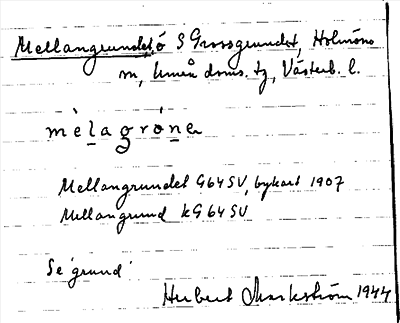 Mellangrundet, ö S Grossgrundet, Holmöns
sn, Umeå doms. tg, Västerb. l.
mèlagròne
Mellangrundet G64SV, bykart 1907
Mellangrund kG64SV
Se 'grund'
Herbert Markström 1944